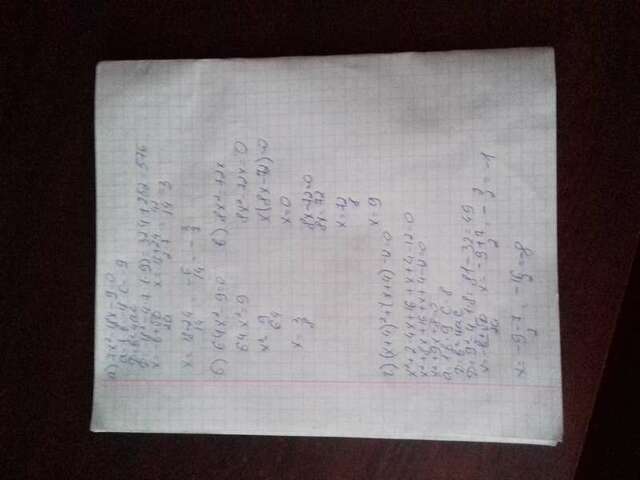 а) 7x²-18x-9=0
a=7 b=-18 c=-9
D=b²-4ac
D=18²-4·7·(-9)=324+252=576
x=-b+√D/2a x=18+24/2·7=42/14=3
x=18-24/14=-6/14=-3/7
б) 64x²-9=0 в) 8x²=72x
64x²=9 8x²-72x=0
x²=9/64 x(8x-72)=0
x=3/8 x=0
8x-72=0
8x=72
x=72/8
x=9
г) (x+4)²+(x+4)-12=0
x²+2·4x+16+x+4-12=0
x²+8x+16+x+4-12=0
x²+9x+8=0
a=1 b=9 c=8
D=b²-4ac
D=9²-4·1·8=81-32=49
x=-b+√D/2a x=-9+7/2=-2/2=-1
x=-9-7/2=-16/2=-8